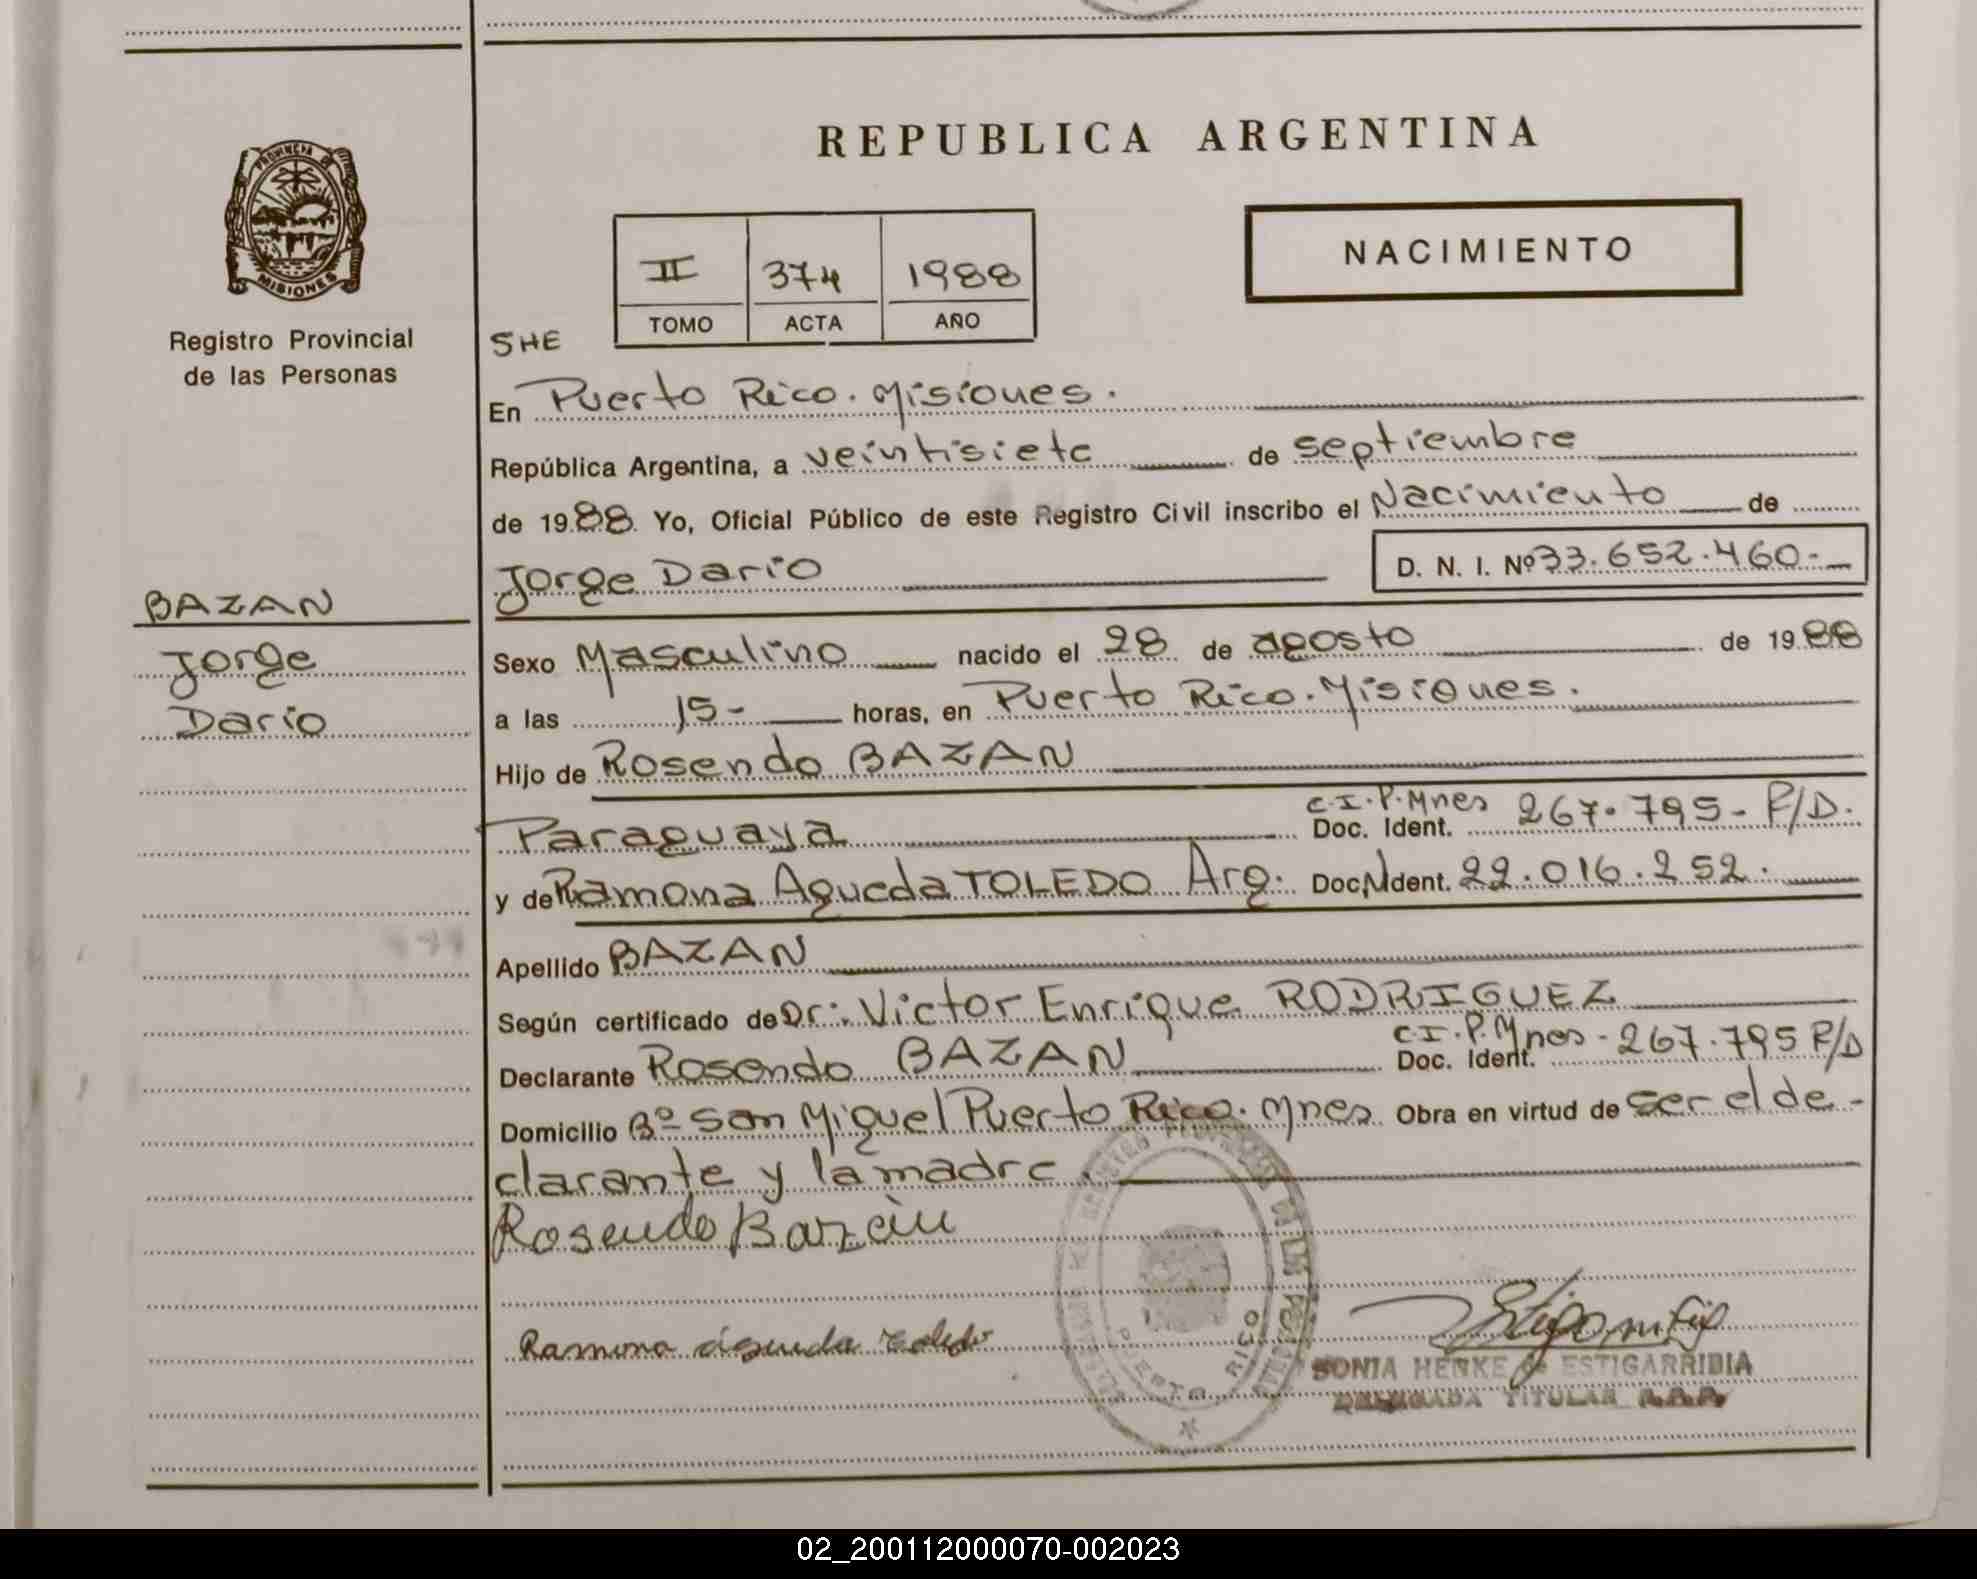 PROVINCIA DE
MISIONES
Registro Provincial
de las Personas
BAZAN
Jorge
Dario
REPUBLICA ARGENTINA
NACIMIENTO
II 374 1988
TOMO ACTA AÑO
SHE
En Puerto Rico. Misiones.
República Argentina, a veintisiete de septiembre
de 1988. Yo, Oficial Público de este Registro Civil inscribo el Nacimiento de
Jorge Dario D. N. I. Nº 33.652.460-
Sexo Masculino nacido el 28 de agosto de 1988
a las 15- horas, en Puerto Rico. Misiones.
Hijo de Rosendo BAZAN
Paraguaya C.I.P.Mnes Doc. Ident. 267.795- P/D.
y de Ramona Agueda TOLEDO Arg. Doc. N Ident. 22.016.252.
Apellido BAZAN
Según certificado de Dr: Victor Enrique RODRIGUEZ
Declarante Rosendo BAZAN C.I.P.Mnes - Doc. Ident. 267.795 P/D
Domicilio Bº San Miguel Puerto Rico. Mnes. Obra en virtud de ser el de-
clarante y la madre.
Rosendo Bazán
Ramona águeda Toledo
PUERTO RICO
SONIA HENKE de ESTIGARRIBIA
DELEGADA TITULAR R.P.P.
02_200112000070-002023